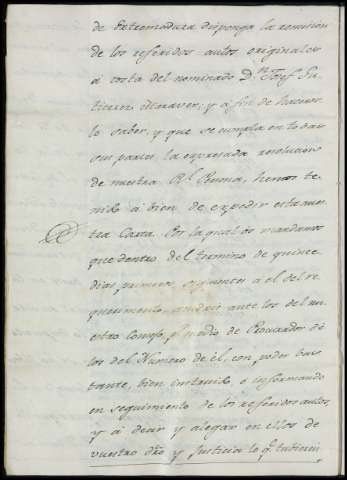 de extremadura disponga la remision
de los referidos autos originales
á costa del nominado D.ⁿ Josef Gu
tierrez Maraver; y á fin de haceros
lo saber, y que se cumpla en todas
sus partes la expresada resolucion
de nuestra R.ˡ Persona, hemos te
nido á bien de expedir esta nues
tra Carta. Por la qual os mandamos
que dentro del termino de quince
dias primeros siguientes á el del re
querimiento, acudais ante los del nu
estro Consejo, p.ʳ medio de Procurador de
los del Numero de él, con poder bas
tante, bien instruido, é informando
en seguimiento de los referidos autos,
y á decir y alegar en ellos de
vuestro dro y Justicia lo q.ᵉ tubiereis